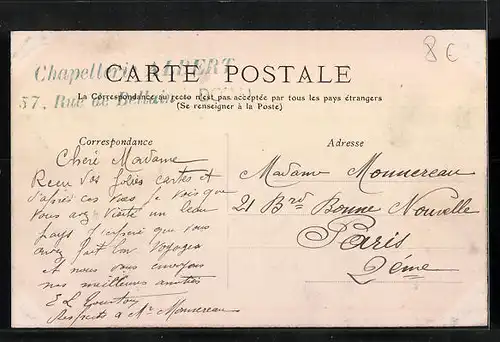 8 €
Chapellerie ALBERT
CARTE POSTALE
57, Rue de Bellain, DOUAI
La Correspondance au recto n'est pas acceptée par tous les pays étrangers
(Se renseigner à la Poste)
Correspondance
Adresse
Chère Madame
Reçu Vos jolies cartes et
d'après ces vues je vois que
vous avez Visité un beau
pays J'espère que vous
avez fait bon Voyage
et nous vous envoyons
nos meilleures amitiés
E L
Respects à Mr Monnereau
Madame Monnereau
21 Brd Bonne Nouvelle
Paris
2ème